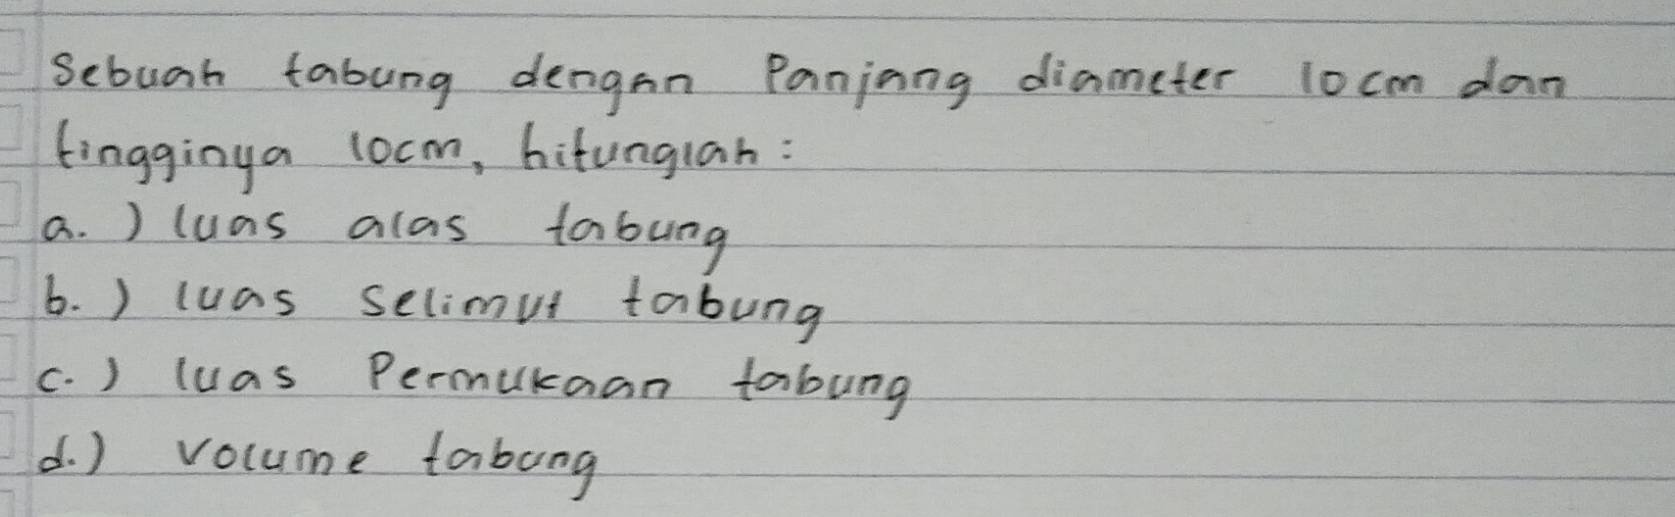 Sebuah tabung dengan Panjang diameter 10cm dan
tingginya 10cm, hitunglah:
a.) luas alas tabung
b.) luas selimut tabung
c.) luas Permukaan tabung
d.) volume tabung